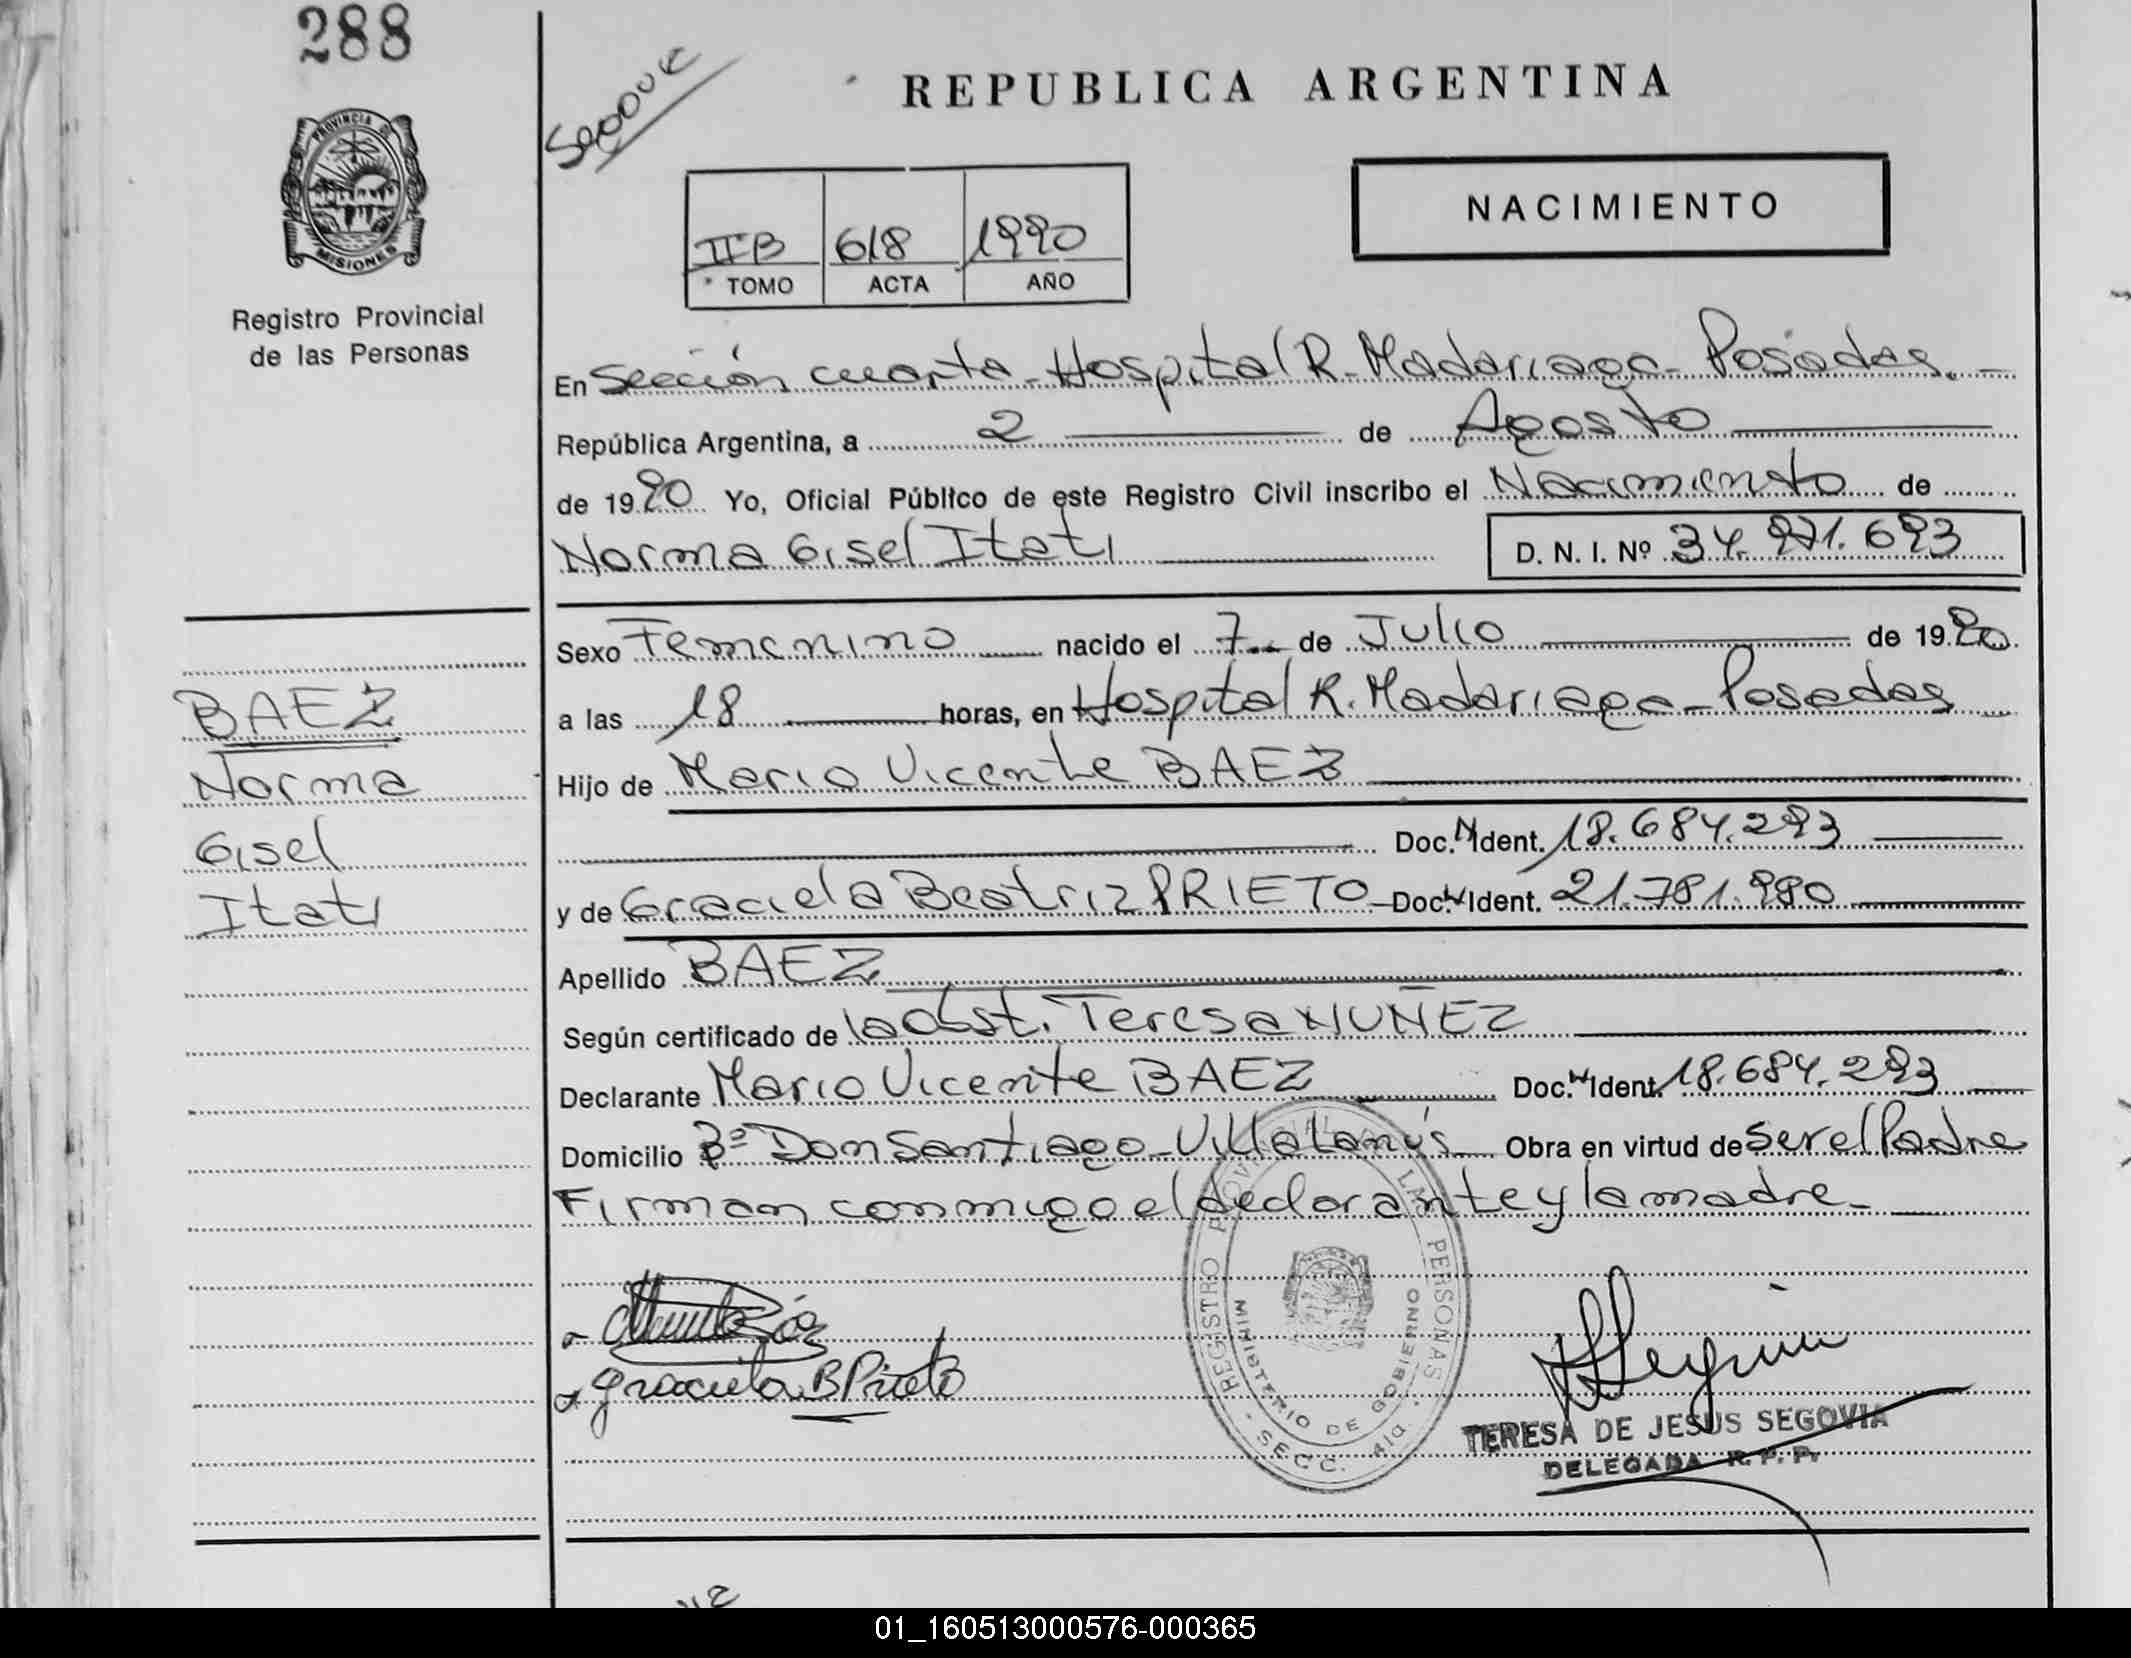 288
PROVINCIA DE
MISIONES
Registro Provincial
de las Personas
REPUBLICA ARGENTINA
NACIMIENTO
IIB 618 1990
TOMO ACTA AÑO
En Sección cuarta - Hospital R. Madariaga - Posadas. -
República Argentina, a 2 de Agosto
de 1990 Yo, Oficial Público de este Registro Civil inscribo el Nacimiento de
Norma Gisel Itati D. N. I. Nº 34.971.693
Sexo Femenino nacido el 7 de Julio de 1990
a las 18 horas, en Hospital R. Madariaga - Posadas
Hijo de Mario Vicente BAEZ
Doc. N Ident. 18.684.293
y de Graciela Beatriz PRIETO - Doc. N Ident. 21.781.980
Apellido BAEZ
Según certificado de la Obst. Teresa NUÑEZ
Declarante Mario Vicente BAEZ Doc. N Ident. 18.684.293
Domicilio Bº Don Santiago - Villa Lanús Obra en virtud de ser el Padre
Firman conmigo el declarante y la madre -
BAEZ
Norma
Gisel
Itati
Graciela B Prieto
REGISTRO PROVINCIAL DE LAS PERSONAS
MINISTERIO DE GOBIERNO
SECC. 4ta.
TERESA DE JESUS SEGOVIA
DELEGADA R. P. P.
01_160513000576-000365